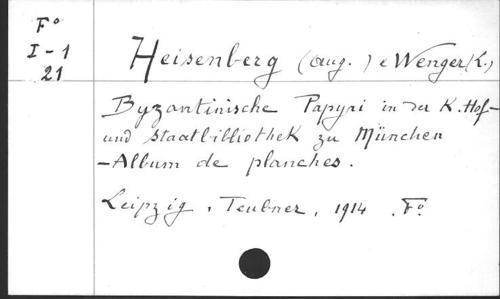 F°
I-1
21
Heisenberg (Aug.) e Wenger (L.)
Byzantinische Papyri in der K. Hof-
und Staatbibliothek zu München
-Album de planches.
Leipzig, Teubner, 1914. F°.